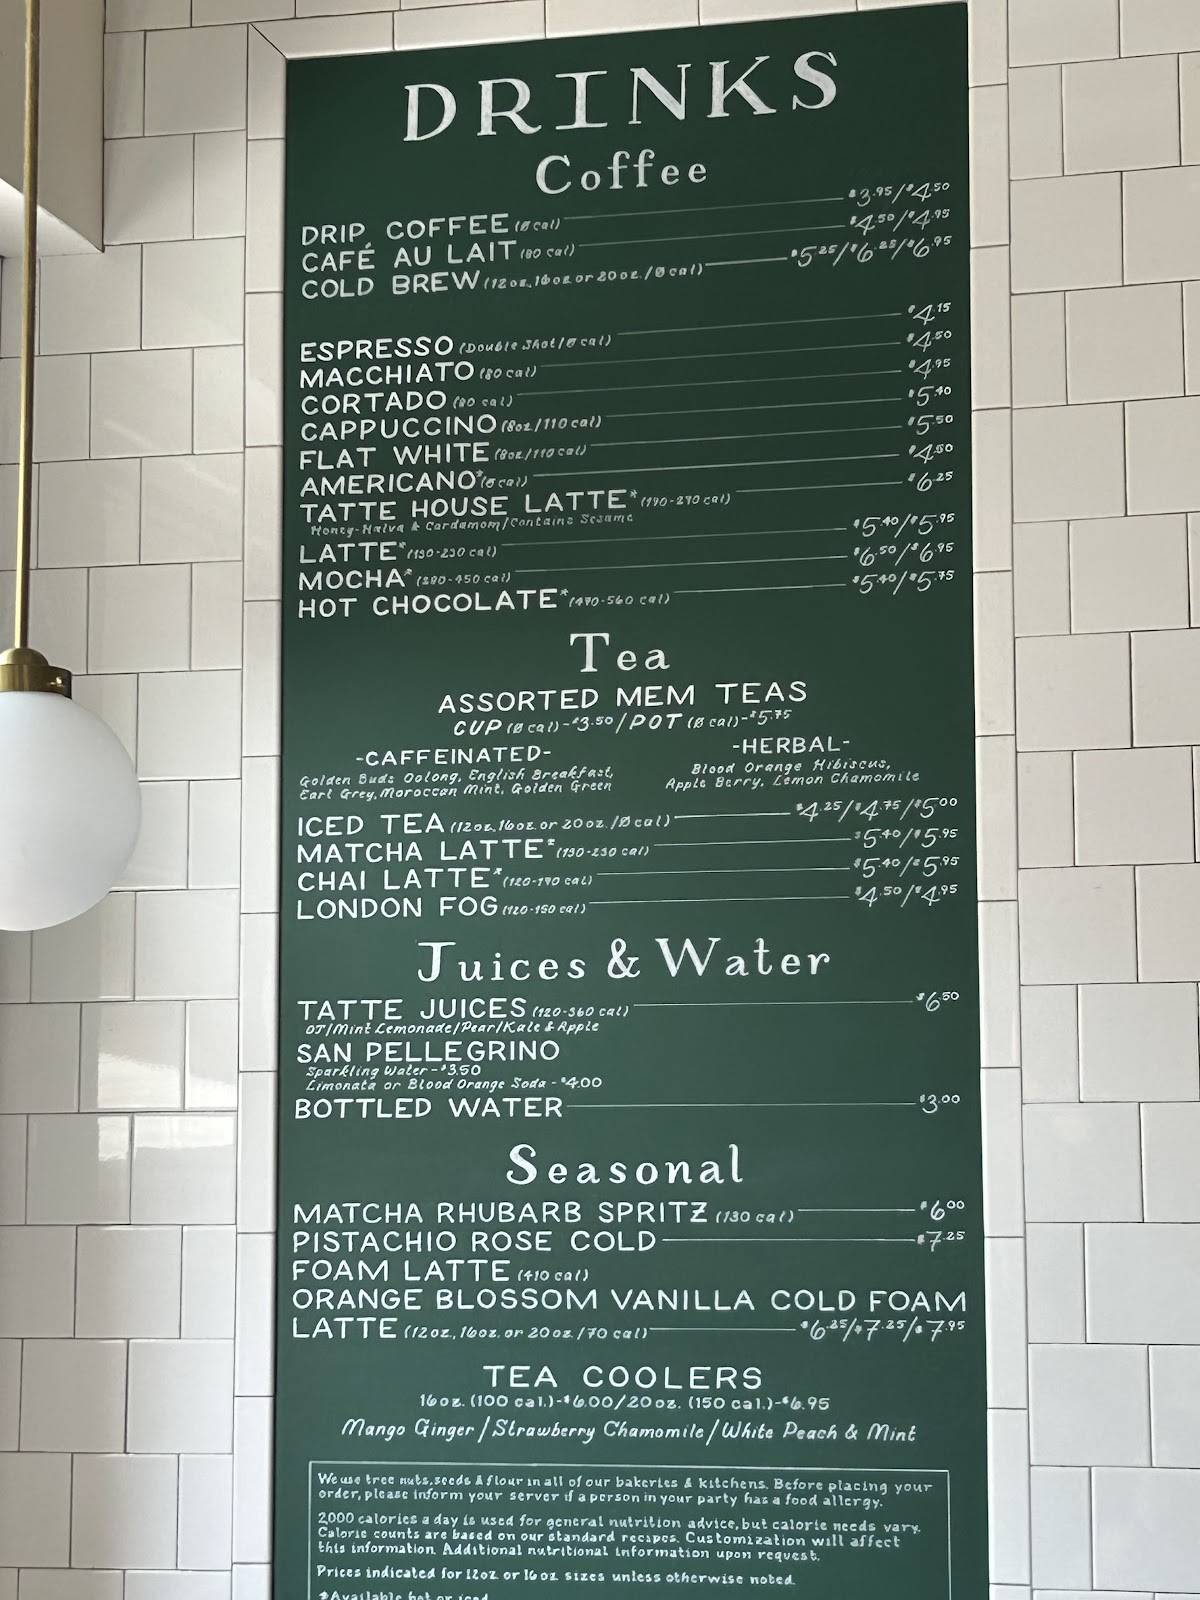 DRINKS
Coffee
DRIP COFFEE (0 cal) $3.95/$4.50
CAFÉ AU LAIT (80 cal) $4.50/$4.95
COLD BREW (12oz., 16oz. or 20oz./0 cal) $5.25/$6.25/$6.95
ESPRESSO (Double Shot/0 cal) $4.15
MACCHIATO (80 cal) $4.50
CORTADO (80 cal) $4.95
CAPPUCCINO (8oz/110 cal) $5.40
FLAT WHITE (8oz/110 cal) $5.50
AMERICANO* (0 cal) $4.50
TATTE HOUSE LATTE* (190-270 cal) $6.25
Honey-Halva & Cardamom/Contains Sesame
LATTE* (130-230 cal) $5.40/$5.95
MOCHA* (280-450 cal) $6.50/$6.95
HOT CHOCOLATE* (470-560 cal) $5.40/$5.75
Tea
ASSORTED MEM TEAS
CUP (0 cal)-$3.50/POT (0 cal)-$5.75
-CAFFEINATED-
Golden Buds Oolong, English Breakfast,
Earl Grey, Moroccan Mint, Golden Green
-HERBAL-
Blood Orange Hibiscus,
Apple Berry, Lemon Chamomile
ICED TEA (12oz., 16oz. or 20oz./0 cal) $4.25/$4.75/$5.00
MATCHA LATTE* (130-230 cal) $5.40/$5.95
CHAI LATTE* (120-190 cal) $5.40/$5.95
LONDON FOG (120-150 cal) $4.50/$4.95
Juices & Water
TATTE JUICES (120-360 cal) $6.50
OJ/Mint Lemonade/Pear/Kale & Apple
SAN PELLEGRINO
Sparkling Water-$3.50
Limonata or Blood Orange Soda-$4.00
BOTTLED WATER $3.00
Seasonal
MATCHA RHUBARB SPRITZ (130 cal) $6.00
PISTACHIO ROSE COLD $7.25
FOAM LATTE (410 cal)
ORANGE BLOSSOM VANILLA COLD FOAM
LATTE (12oz., 16oz. or 20oz./70 cal) $6.25/$7.25/$7.95
TEA COOLERS
16oz. (100 cal.)-$6.00/20oz. (150 cal.)-$6.95
Mango Ginger/Strawberry Chamomile/White Peach & Mint
We use tree nuts, seeds & flour in all of our bakeries & kitchens. Before placing your
order, please inform your server if a person in your party has a food allergy.
2,000 calories a day is used for general nutrition advice, but calorie needs vary.
Calorie counts are based on our standard recipes. Customization will affect
this information. Additional nutritional information upon request.
Prices indicated for 12oz or 16oz sizes unless otherwise noted.
*Available hot or iced